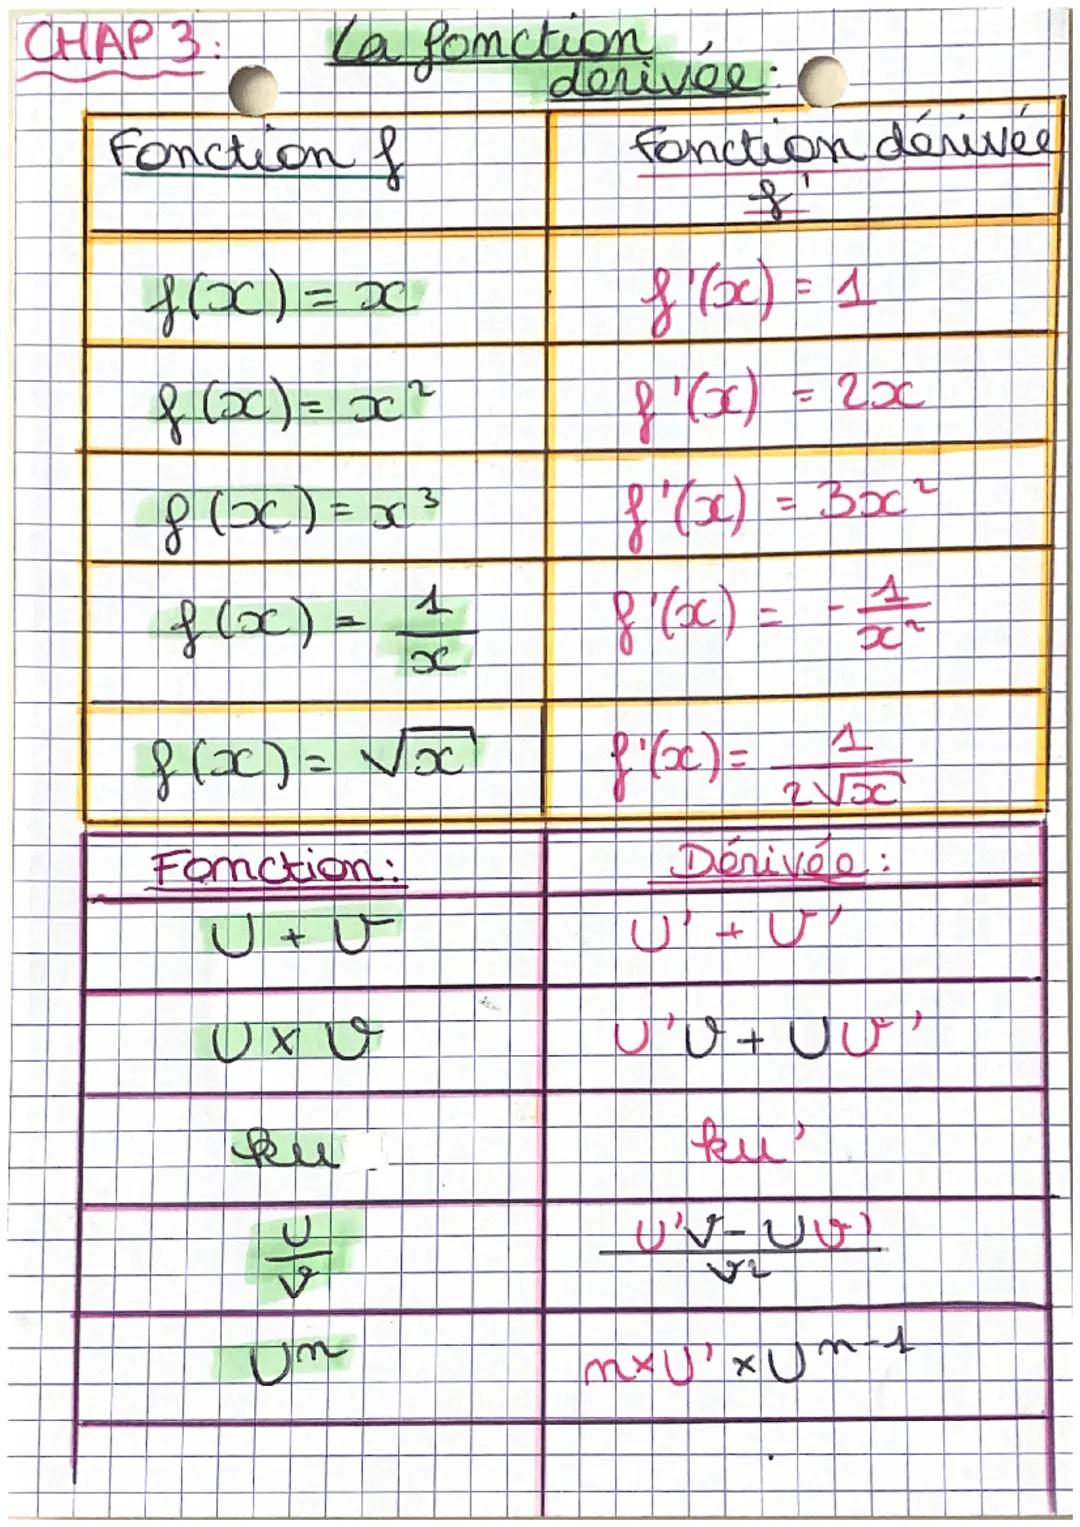 CHAP 3: La fonction
dérivée:
Fonction f
fonction dérivée
f'
f(x) = x
f'(x) = 1
f(x) = x²
f'(x) = 2x
f(x) = x³
f'(x) = 3x²
f(x) = 1/x
f'(x) = - 1/x²
f(x) = √x
f'(x) = 1/(2√x)
Fonction:
Dérivée:
U + V
U' + V'
U x V
U'V + UV'
ku
ku'
U/V
(U'V - UV')/V²
Uⁿ
n x U' x Uⁿ⁻¹